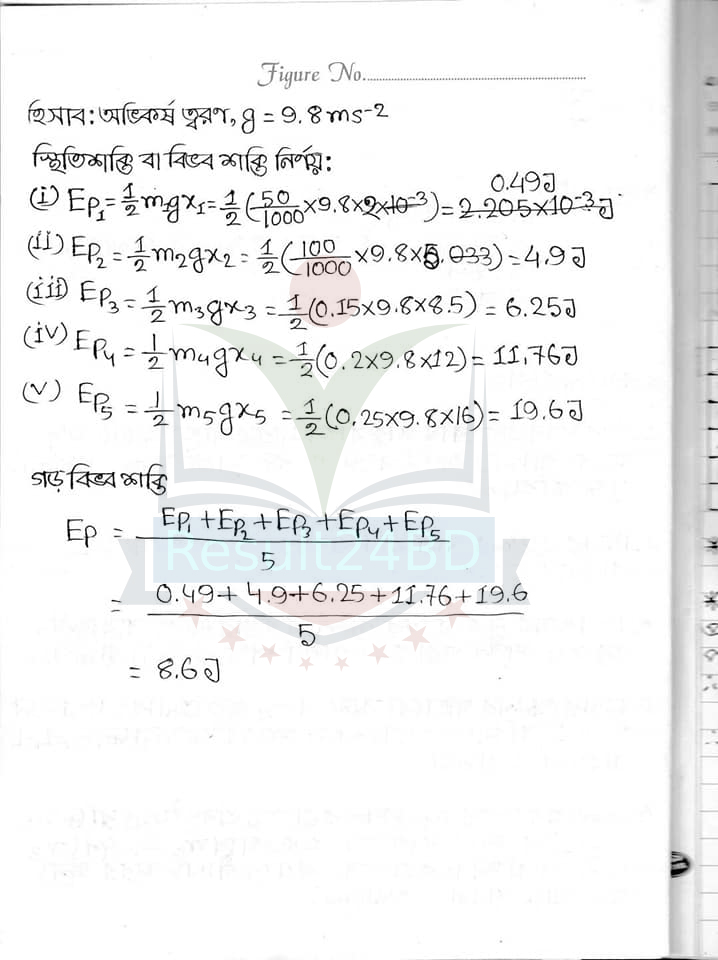 Figure No.
হিসাব: অভিকর্ষ ত্বরণ, g = 9.8 ms-2
স্থিতিশক্তি বা বিভব শক্তি নির্ণয়:
0.49J
(i) EP1 = 1/2 m1gx1 = 1/2 (50/1000 ×9.8×2×10-3) = 2.205×10-3 J
(ii) EP2 = 1/2 m2gx2 = 1/2 (100/1000 ×9.8×5.033) = 4.9J
(iii) EP3 = 1/2 m3gx3 = 1/2 (0.15×9.8×8.5) = 6.25J
(iv) EP4 = 1/2 m4gx4 = 1/2 (0.2×9.8×12) = 11.76J
(v) EP5 = 1/2 m5gx5 = 1/2 (0.25×9.8×16) = 19.6J
গড় বিভব শক্তি
EP = EP1+EP2+EP3+EP4+EP5
5
Result24BD
= 0.49+4.9+6.25+11.76+19.6
5
= 8.6J